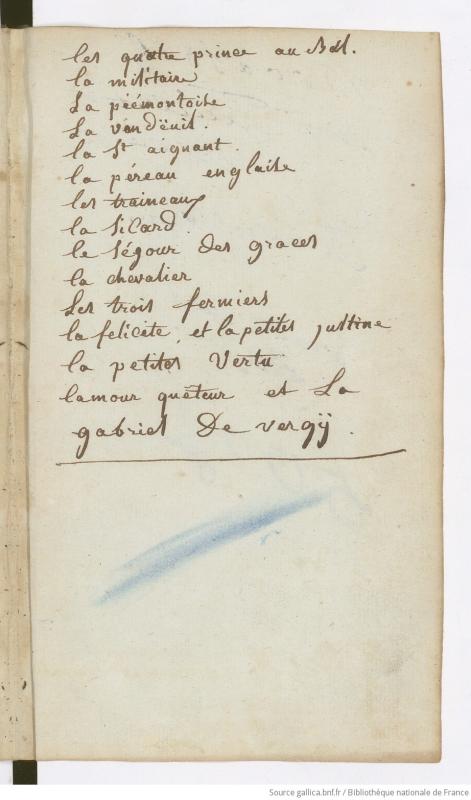 les quatre prince au Bal.
la militaire
La piémontoise
La vandëuil.
la St aignant.
la péreau englaise
les traineaux
la Sicard.
le Ségour des graces
la chevalier
Les trois fermiers
la felicite, et la petites justine
la petites Vertu
lamour quêteur et La
gabriel De vergÿ.
Source gallica.bnf.fr / Bibliothèque nationale de France